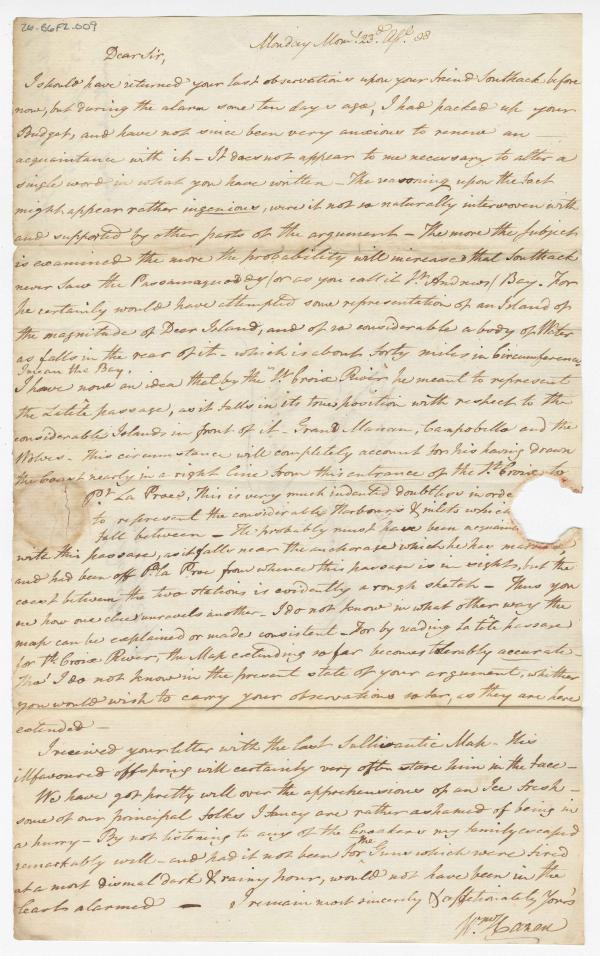 26-B6F2.009
Monday Morng. 23d. Apl. 98
Dear Sir,
I should have returned your last observations upon your friend Southack before
now, but during the alarm some ten days ago, I had packed up your
Budget, and have not since been very anxious to renew an
acquaintance with it - It does not appear to me necessary to alter a
single word in what you have written - The reasoning upon the fact
might appear rather ingenious, were it not so naturally interwoven with
and supported by other parts of the argument - The more the subject
is examined the more the probability will increase that Southack
never saw the Passamaquoddy (or as you call it St. Andrews) Bay. For
he certainly would have attempted some representation of an Island of
the magnitude of Dear Island, and of so considerable a body of Water
as falls in the rear of it - which is about forty miles in Circumference
I mean the Bay.
I have now an idea that by the "St. Croix River" he meant to represent
the Latête passage, as it falls in its true position with respect to the
considerable Islands in front of it - Grand Manan, Campobello and the
Wolves - This circumstance will completely account for his having drawn
the Coast nearly in a right line from this entrance of the St. Croix to
Pt. La Proe, This is very much indented doubtless in orde
to represent the considerable Harbours & inlets which
fall between - He probably must have been acquain
with this passage, as it falls near the anchorage which he has
and had been off Pt. la Proe from whence this passage is in sight, but the
coast between the two stations is evidently a rough sketch - Thus you
see how one clue unravels another - I do not know in what other way the
map can be explained or made consistent - For by reading Latête passage
for St. Croix River, the Map extending so far becomes tolerably accurate -
Tho' I do not know in the present state of your argument, whether
you would wish to carry your observations so far, as they are here
extended -
I received your letter with the last Sullivantic Map - This
illfavoured offspring will certainly very often stare him in the face -
We have got pretty well over the apprehensions of an Ice fresh -
some of our principal folks I fancy are rather ashamed of being in
a hurry - By not listening to any of the Croakers my family escaped
remarkably well - and had it not been for the Guns which were fired
at a most dismal dark & rainy hour, would not have been in the
least alarmed - I remain most sincerely & affectionately Yours
Wm.